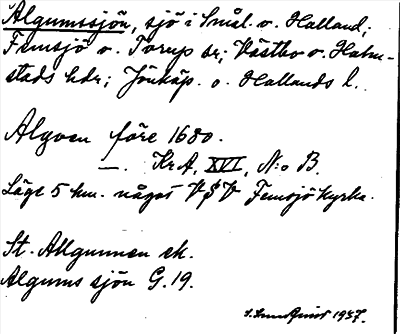 Älgumssjön, sjö i Smål. o. Halland;
Femsjö o. Torup sr; Västbo o. Halm-
stads hdr; Jönköp. o. Hallands l.
Algoen före 1680.
—. Kr A, XVI, N:o B.
Läge 5 km. något VSV Femsjö kyrka.
St. Allgunnen ek.
Algums sjön G. 19.
1937.